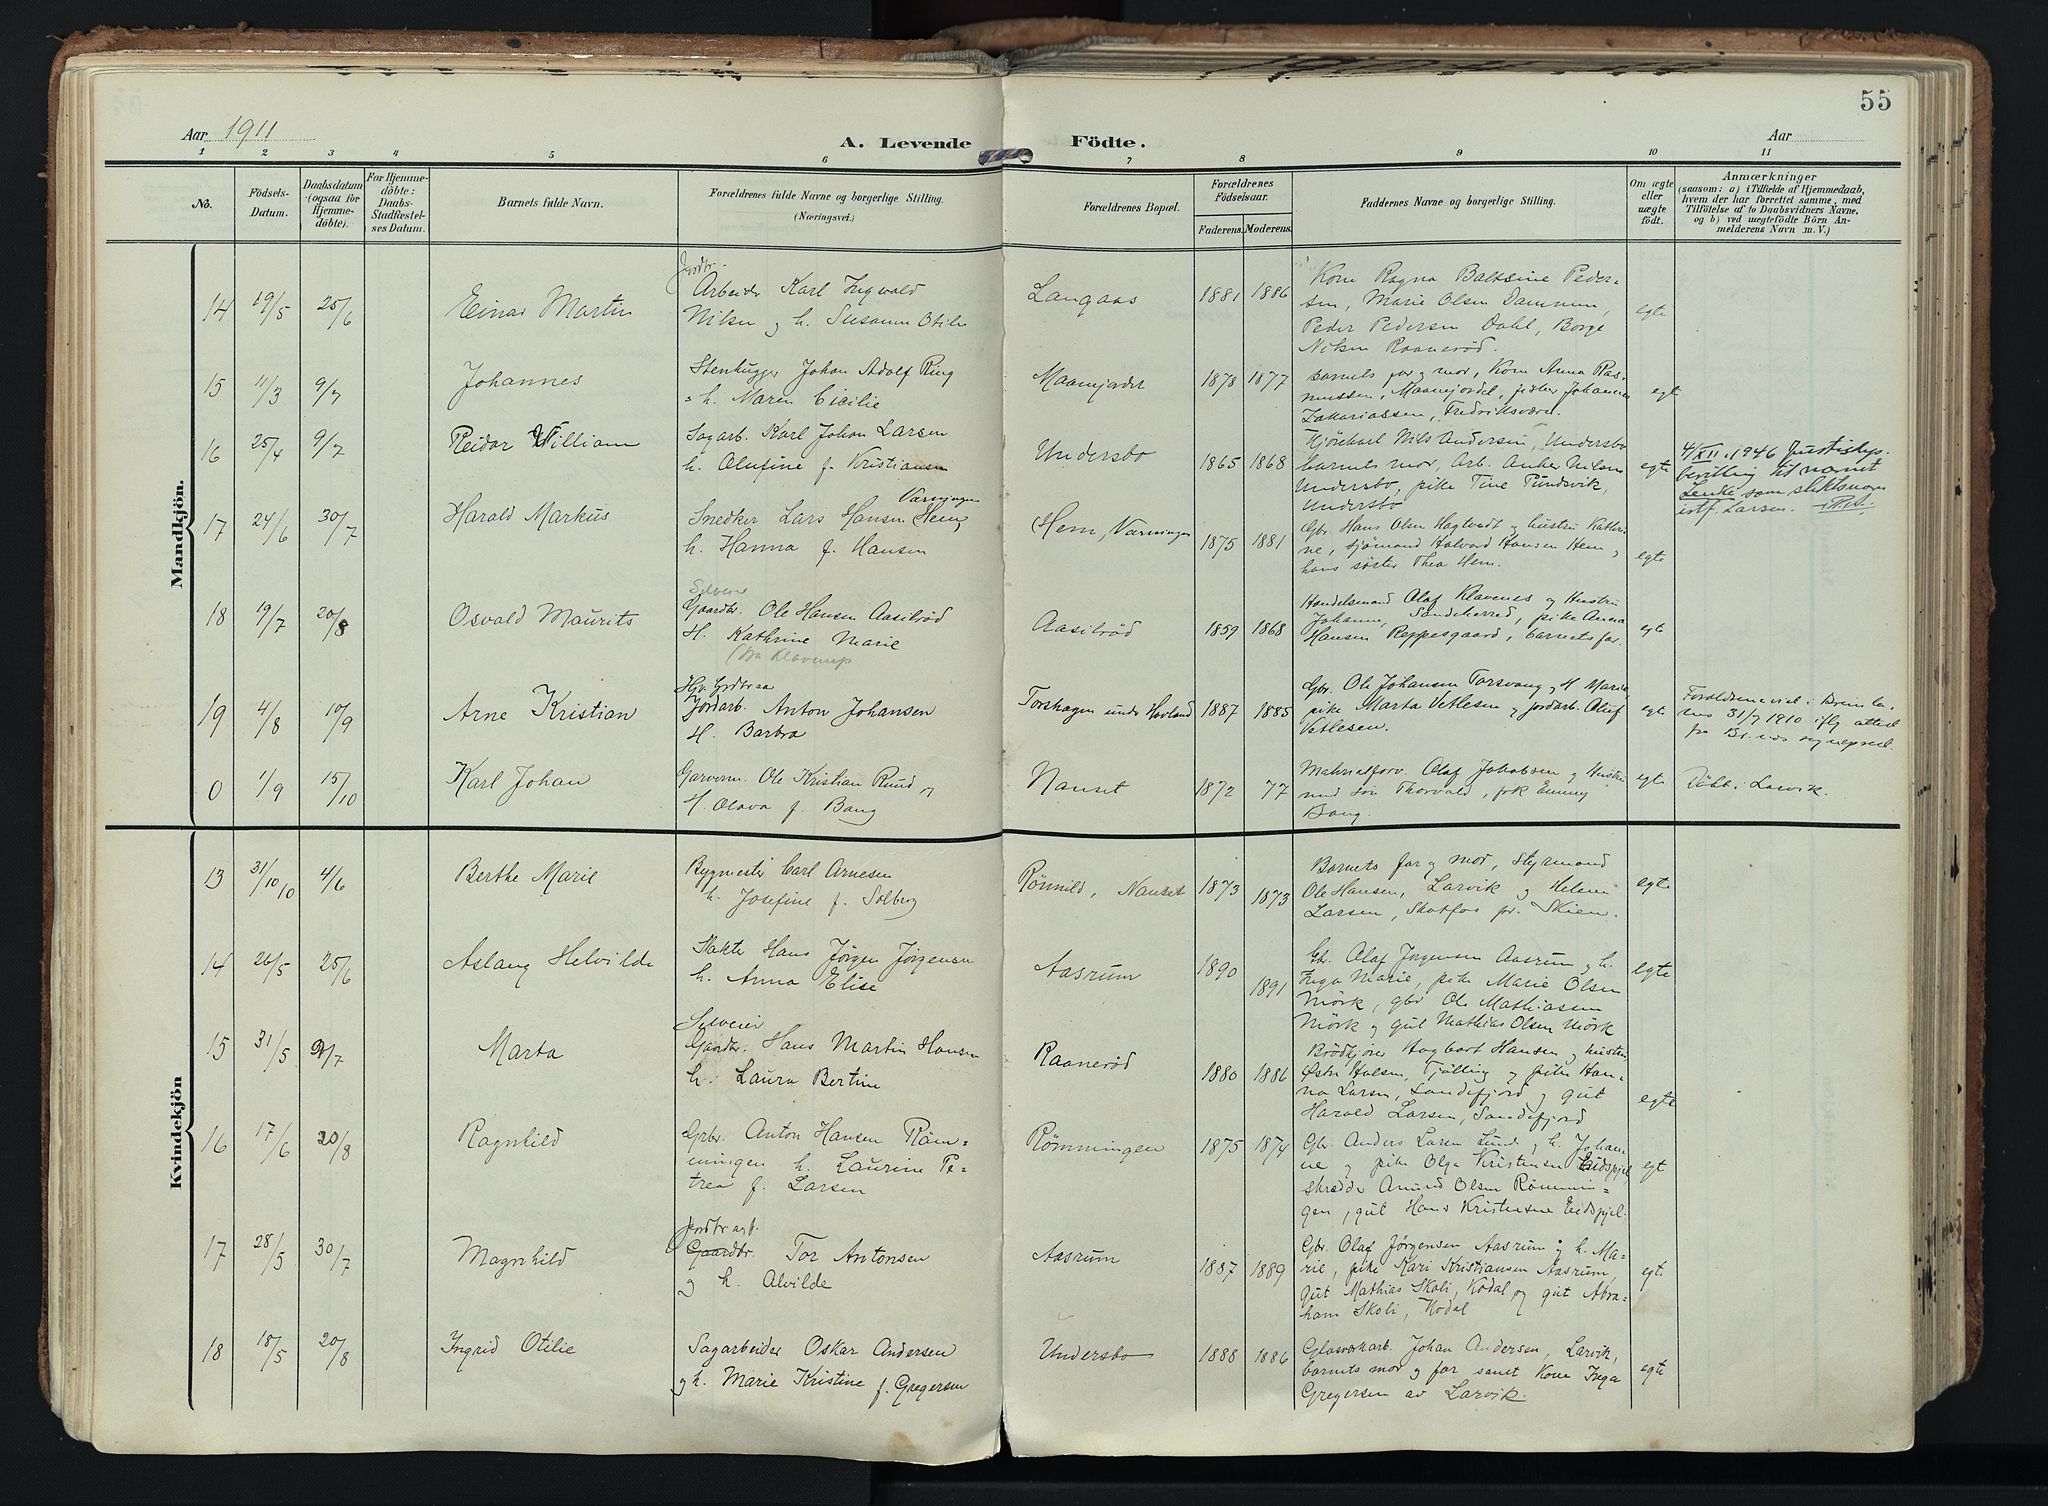 55
Aar 1911
A. Levende Födte.
Aar
1 2 3 4 5 6 7 8 9 10 11
No.
Födsels-
Datum.
Daabsdatum
(ogsaa for
Hjemme-
döbte).
For Hjemme-
döbte:
Daabs-
Stadfæstel-
ses Datum.
Barnets fulde Navn.
Forældrenes fulde Navne og borgerlige Stilling.
(Næringsvei.)
Forældrenes Bopæl.
Forældrenes
Födselsaar.
Faderens. Moderens.
Faddernes Navne og borgerlige Stilling.
Om ægte
eller
uægte
födt.
Anmærkninger
(saasom: a) i Tilfælde af Hjemmedaab,
hvem der har forrettet samme, med
Tilföielse af to Daabsvidners Navne,
og b) ved uægtefödte Börn An-
melderens Navn m. V.)
Mandkjön.
14 19/5 25/6 Einar Martin
Jordbr.
Arbeider Karl Ingvald
Nilsen og h. Susanne Otilie
Langaas 1881 1886
Kone Ragna Baltsine Peder-
sen, Marie Olsen Dammen,
Peder Pedersen Dahl, Borge
Nilsen Raanerød.
egte
15 11/3 9/7 Johannes
Stenhugger Johan Adolf Ring
h. Maren Cicilie
1878 1877
barnets far og mor, Kone Anna Ras-
mussen, Maanejordet, Johanna
Zakariassen, Fredriksværn.
egte
16 25/4 9/7 Reidar William
Sagarb. Karl Johan Larsen
h. Olufine f. Kristiansen
Undersbo 1865 1868
Kjørekarl Nils Andersen, Undersbo
barnets mor, Arb. Anker Nilsen
Undersbo, pike Tine Pundsvik,
Undersbo
egte
4/XII. 1946 Justisdep.
bevilling til navnet
Lenke som slektsnavn
istf. Larsen.
17 24/6 30/7 Harald Markus
Snedker Lars Hansen Hem,
h. Hanna f. Hansen
Hem, Varmingen 1875 1881
Gbr. Hans Olsen Hagtvedt og hustru Kathri-
ne, sjømand Halvard Hansen Hem og
hans søster Thea Hem.
egte
18 19/7 20/8 Osvald Maurits
Selveier
Gaardbr. Ole Hansen Aasilrød
H. Kathrine Marie
Aasilrød 1859 1868
Handelsmand Olaf Klavenes og Hustru
Johanne, Sandeherred, pike Anna
Hansen Reppesgaard, barnets far.
egte
19 4/8 10/9 Arne Kristian
Jordarb. Anton Johansen
H. Barbra
Torshagen under Hovland 1887 1885
Gbr. Ole Johansen Torsvang og H Marie,
pike Marta Vetlesen og jordarb. Oluf
Vetlesen.
egte
Forældrene viet i Brunla-
nes 31/7 1910 iflg. attest
fra Br. nes sognepræst.
0 1/9 15/10 Karl Johan
Garverm. Ole Kristian Ruud og
H. Olava f. Bang
Nanset 1872 77
Materialforv. Olaf Jakobsen og Hustru
med søn Thorvald, frk Emmy
Bang.
egte
Döbt i Larvik.
Kvindekjön
13 31/10 10 4/6 Berthe Marie
Bygmester Carl Arnesen
h. Josefine f. Solberg
Rønvild, Nanset 1873 1873
Barnets far og mor, Styrmand
Ole Hansen, Larvik og Helene
Larsen, Skotfos pr. Skien.
egte
14 26/5 25/6 Aslaug Helvilde
Slakter Hans Jørgen Jørgensen
h. Anna Elise
Aasrum 1890 1891
Gbr. Olaf Jørgensen Aasrum og h.
Inga Marie, pike Marie Olsen
Mørk, gbr Ole Mathiassen
Mørk og gut Mathias Olsen Mørk
egte
15 31/5 9/7 Marta
Selveier
Gaardbr. Hans Martin Hansen
h. Laura Bertine
Raanerød 1880 1886
Brødkjører Hagbart Hansen og hustru
Østre Halsen, Tjølling og pike Han-
na Larsen, Sandefjord og gut
Harald Larsen, Sandefjord
egte
16 17/6 20/8 Ragnhild
Grbr. Anton Hansen Røm-
mingen h. Laurine Pe-
trea f. Larsen
Rømmingen 1875 1874
Gbr. Anders Larsen Lund og h. Johan-
ne og pike Olga Kristensen Eidspjel
skrædder Amund Olsen Rømmin-
gen, gut Hans Kristensen Eidspjel.
egte
17 28/5 30/7 Magnhild
Jordbr.
Gaardbr. Tor Antonsen
og h. Alvilde
Aasrum 1887 1889
Gbr. Olaf Jørgensen Aasrum og h. Ma-
rie, pike Kari Kristiansen Aasrum,
gut Mathias Skoli, Kodal og gut Abra-
ham Skoli, Kodal
egte
18 18/5 20/8 Ingrid Otilie
Sagarbeider Oskar Andersen
og h. Marie Kristine f. Gregersen
Undersbo 1888 1886
Glasværkarb. Johan Andersen, Larvik,
barnets mor og far samt Kone Inga
Gregersen av Larvik.
egte